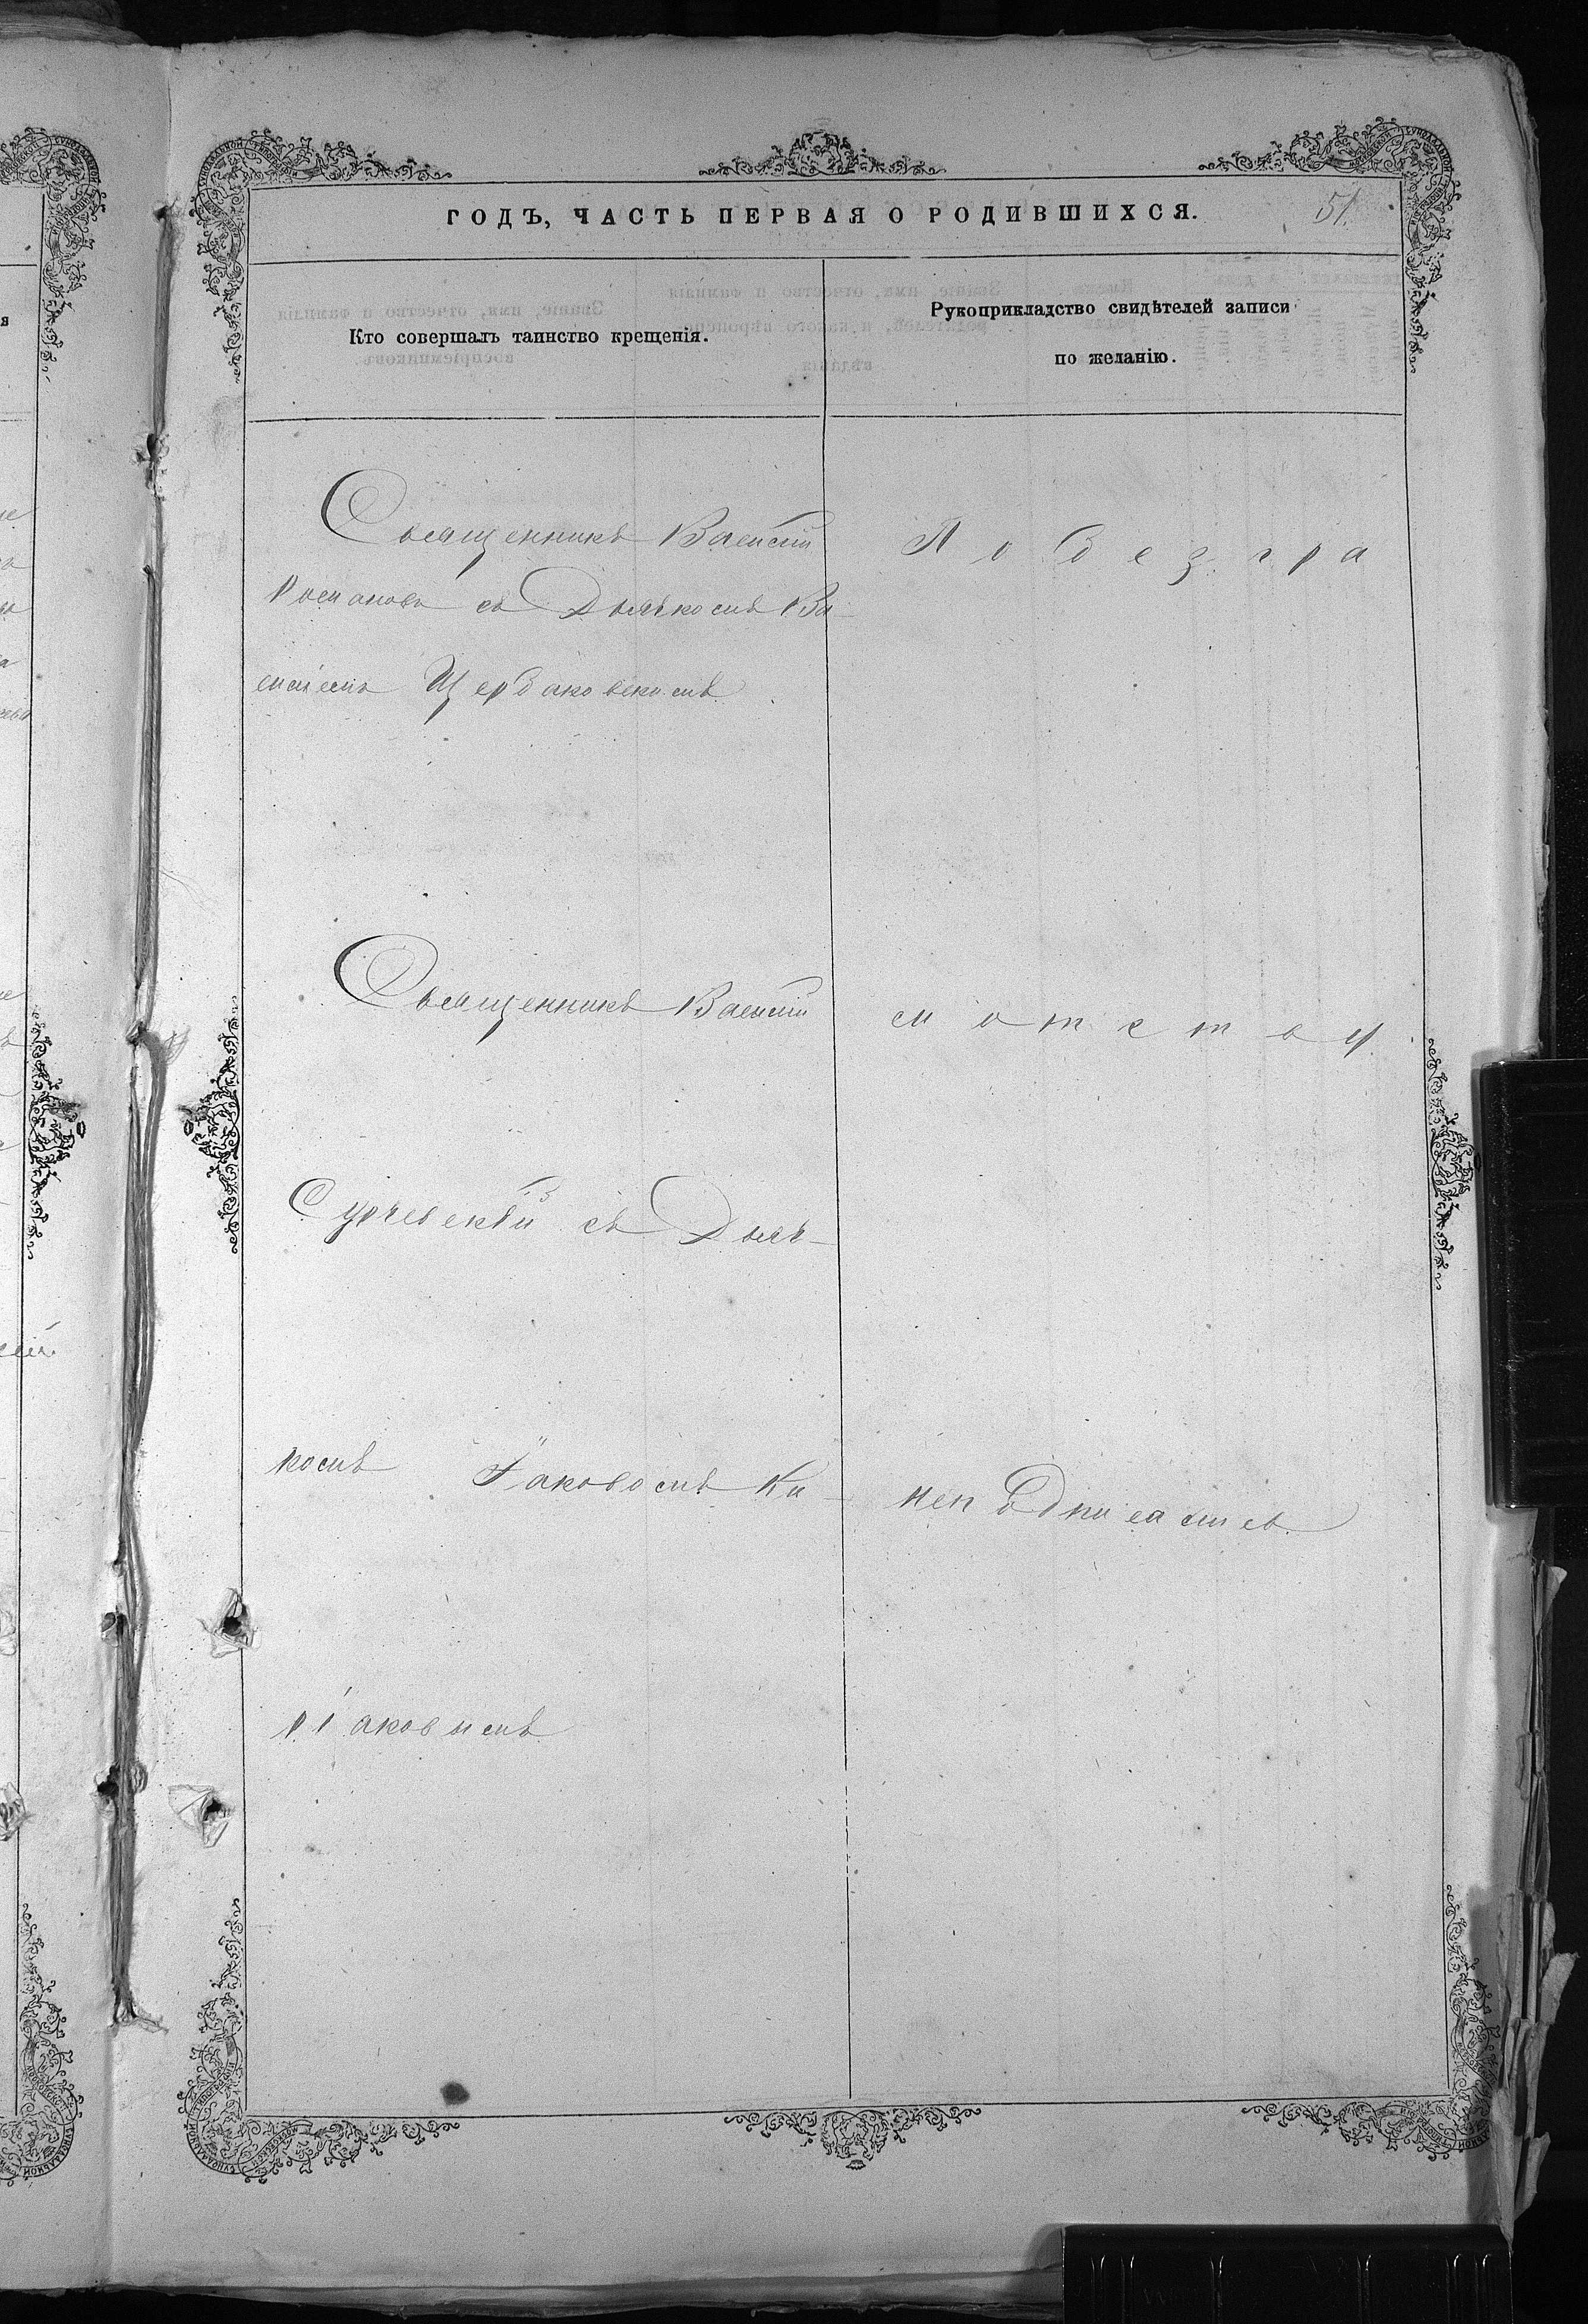 ГОДЪ, ЧАСТЬ ПЕРВАЯ О РОДИВШИХСЯ.
51.
Кто совершалъ таинство крещенія.
Рукоприкладство свидѣтелей записи
по желанію.
Священникъ Василій
Романовъ съ Дьячкомъ Ва-
силіемъ Щербаковскимъ
По безгра
Священникъ Василій
мотству
Сурчевскій съ Дьяч-
комъ Іаковомъ Ки-
ріаковымъ
неподписались